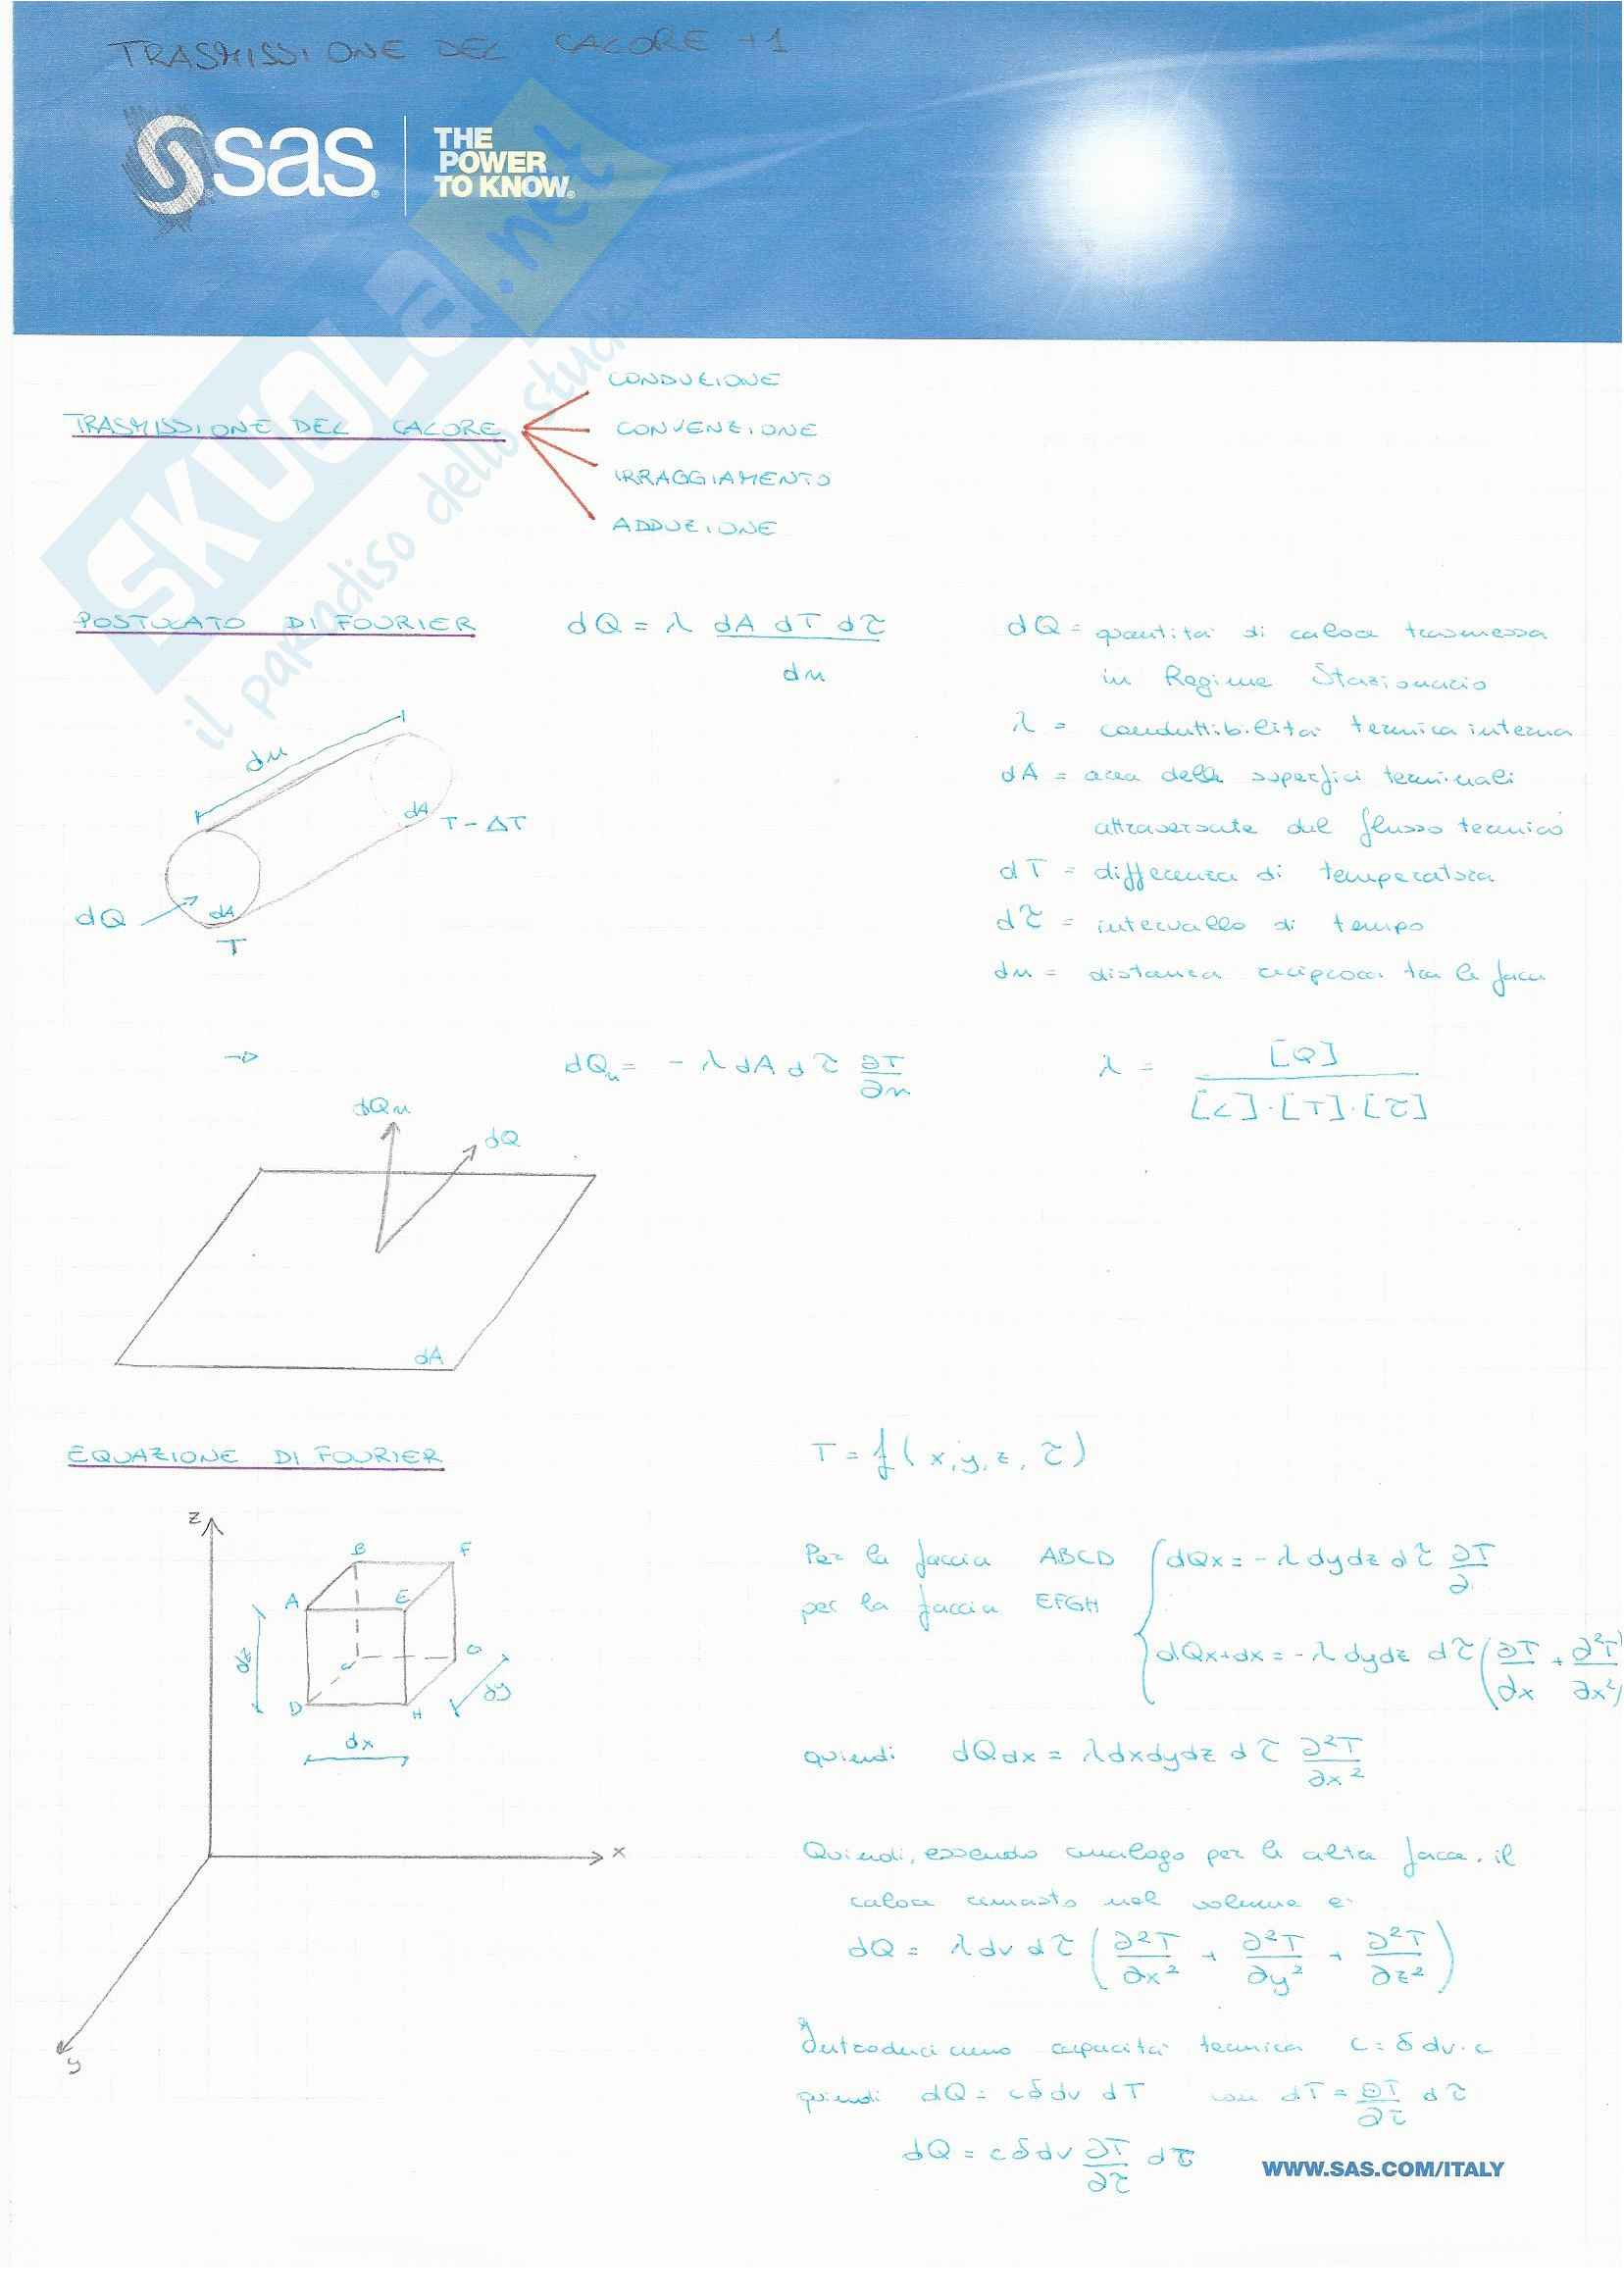 TRASMISSIONE DEL CALORE +1
sas
THE
POWER
TO KNOW.
SKUOLA.net
il paradiso dello studente
TRASMISSIONE DEL CALORE
CONDUZIONE
CONVENZIONE
IRRAGGIAMENTO
ADDUZIONE
POSTULATO DI FOURIER
dQ = λ dA dT dτ / dn
dQ = quantità di calore trasmessa
in Regime Stazionario
λ = conduttibilità termica interna
dA = area delle superfici terminali
attraversate dal flusso termico
dT = differenza di temperatura
dτ = intervallo di tempo
dn = distanza reciproca tra le facce
dn
dA
T-ΔT
dQ
dA
T
→
dQn = -λ dA dτ ∂T/∂n
λ = [Q] / [L]·[T]·[τ]
dQn
dQ
dA
EQUAZIONE DI FOURIER
T = f(x, y, z, τ)
z
B
F
A
E
dz
C
G
D
H
dy
dx
x
y
Per la faccia ABCD
dQx = -λ dydz dτ ∂T/∂
per la faccia EFGH
dQx+dx = -λ dydz dτ (∂T/∂x + ∂²T/∂x²)
quindi dQdx = λdxdydz dτ ∂²T/∂x²
Quindi, essendo analogo per le altre facce, il
calore rimasto nel volume è:
dQ = λ dv dτ (∂²T/∂x² + ∂²T/∂y² + ∂²T/∂z²)
Introduciamo capacità termica C = δ dv·c
quindi dQ = cδdv dT con dT = ∂T/∂τ dτ
dQ = cδdv ∂T/∂τ dτ
WWW.SAS.COM/ITALY